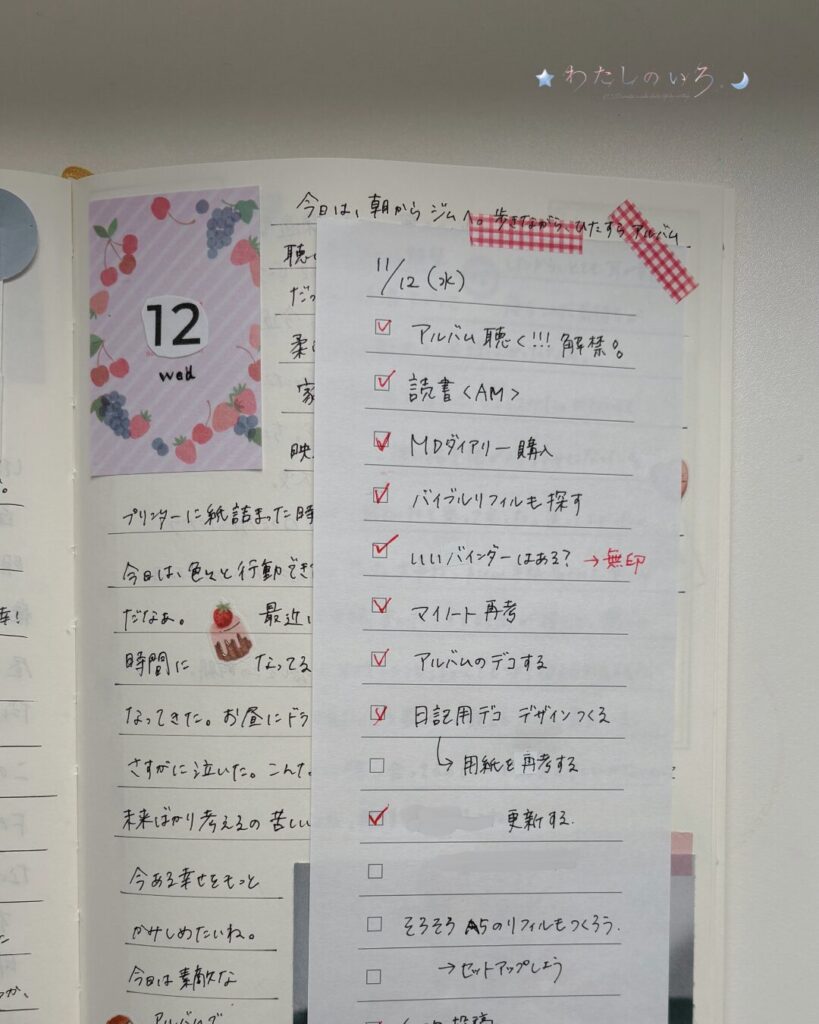 わたしのいろ
今日は、朝から ジムへ。歩きながら、ひたすら アルバム
聴
だっ
柔
家
映
12
wed
プリンターに紙詰まった時
今日は、色々と行動でき
だなぁ。 最近
時間に なってる
なってきた。お昼にドラ
さすがに泣いた。こんな
未来ばかり考えるの苦しい
今ある幸せをもっと
かみしめたいね。
今日は素敵な
アルバムが
11/12(水)
アルバム聴く!!! 解禁。
読書<AM>
MDダイアリー購入
バイブルリフィルも探す
いいバインダーはある? →無印
マイノート再考
アルバムのデコする
日記用デコ デザインつくる
↳用紙を再考する
更新する.
そろそろ A5のリフィルもつくろう.
→セットアップしよう
投稿